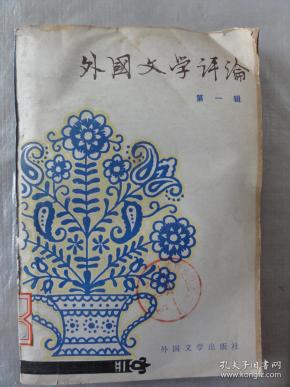 外國文学评論
第一辑
外国文学出版社
孔夫子旧书网